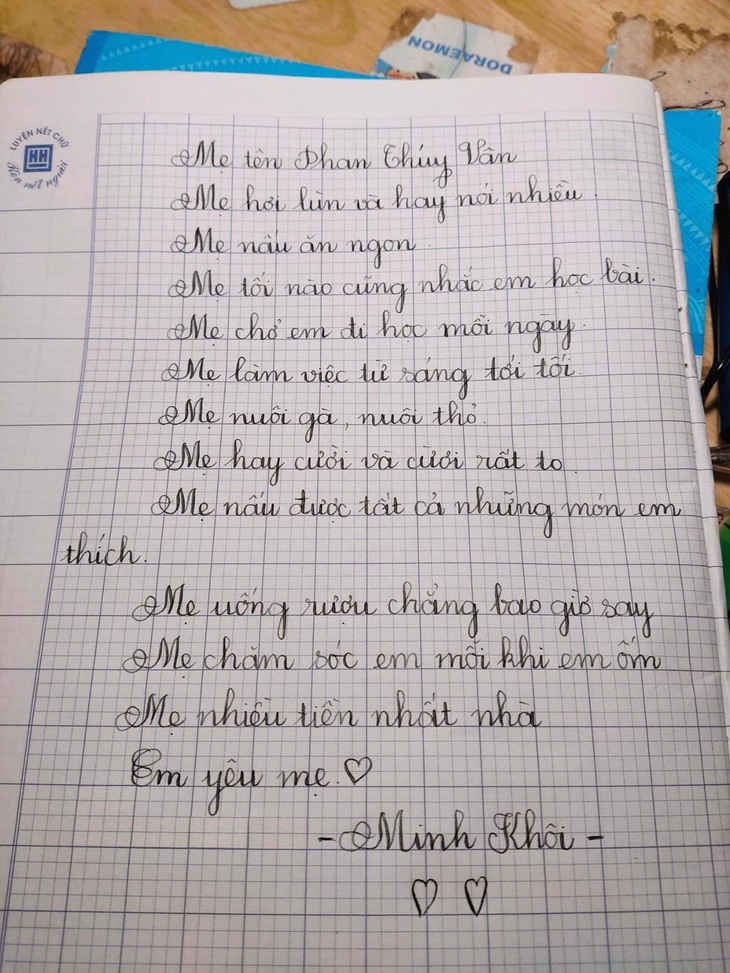 DORAEMON
LUYỆN NÉT CHỮ
HH
Rèn nết người
Mẹ tên Phan Thúy Vân
Mẹ hơi lùn và hay nói nhiều.
Mẹ nấu ăn ngon
Mẹ tối nào cũng nhắc em học bài.
Mẹ chở em đi học mỗi ngày.
Mẹ làm việc từ sáng tới tối.
Mẹ nuôi gà, nuôi thỏ.
Mẹ hay cười và cười rất to
Mẹ nấu được tất cả những món em
thích.
Mẹ uống rượu chẳng bao giờ say
Mẹ chăm sóc em mỗi khi em ốm
Mẹ nhiều tiền nhất nhà
Em yêu mẹ. ♡
- Minh Khôi -
♡ ♡